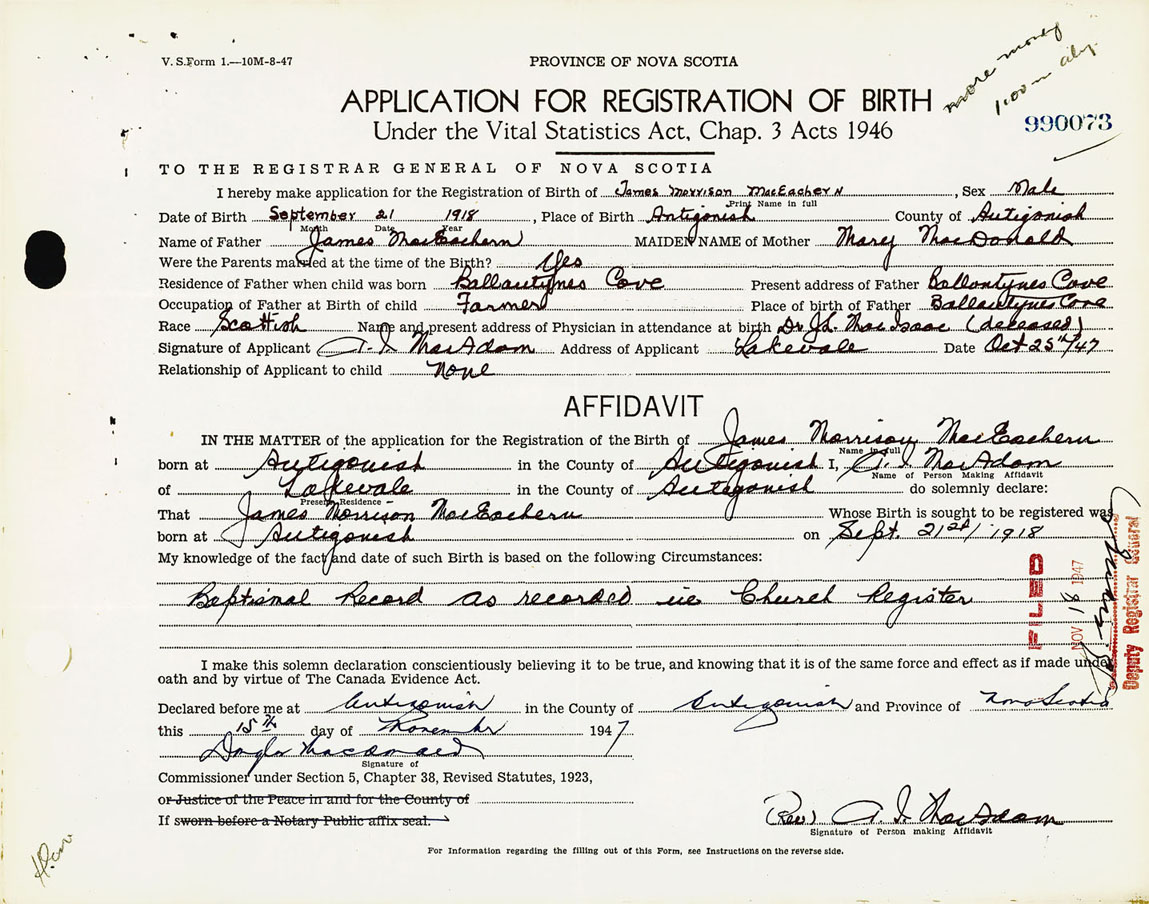 V. S. Form 1.—10M-8-47
PROVINCE OF NOVA SCOTIA
more money
APPLICATION FOR REGISTRATION OF BIRTH
Under the Vital Statistics Act, Chap. 3 Acts 1946
990073
TO THE REGISTRAR GENERAL OF NOVA SCOTIA
I hereby make application for the Registration of Birth of James Morrison MacEachern, Sex Male
Print Name in full
Date of Birth September 21 1918, Place of Birth Antigonish County of Antigonish
Month Date Year
Name of Father James MacEachern MAIDEN NAME of Mother Mary MacDonald
Were the Parents married at the time of the Birth? Yes
Residence of Father when child was born Ballantynes Cove Present address of Father Ballantynes Cove
Occupation of Father at Birth of child Farmer Place of birth of Father Ballantynes Cove
Race Scottish Name and present address of Physician in attendance at birth Dr. J.L. MacIsaac (deceased)
Signature of Applicant A. I. MacAdam Address of Applicant Lakevale Date Oct 25th/47
Relationship of Applicant to child None
AFFIDAVIT
IN THE MATTER of the application for the Registration of the Birth of James Morrison MacEachern
Name in full
born at Antigonish in the County of Antigonish I, A. I. MacAdam
Name of Person Making Affidavit
of Lakevale in the County of Antigonish do solemnly declare:
Present Residence
That James Morrison MacEachern Whose Birth is sought to be registered was
born at Antigonish on Sept. 21st/1918
My knowledge of the fact and date of such Birth is based on the following Circumstances:
Baptismal Record as recorded in Church Register
FILED
NOV 18 1947
Deputy Registrar General
I make this solemn declaration conscientiously believing it to be true, and knowing that it is of the same force and effect as if made under
oath and by virtue of The Canada Evidence Act.
Declared before me at Antigonish in the County of Antigonish and Province of Nova Scotia
this 15th day of November 1947
Macdonald
Signature of
Commissioner under Section 5, Chapter 38, Revised Statutes, 1923,
or Justice of the Peace in and for the County of
If sworn before a Notary Public affix seal.
(Rev) A. I. MacAdam
Signature of Person making Affidavit
For Information regarding the filling out of this Form, see Instructions on the reverse side.